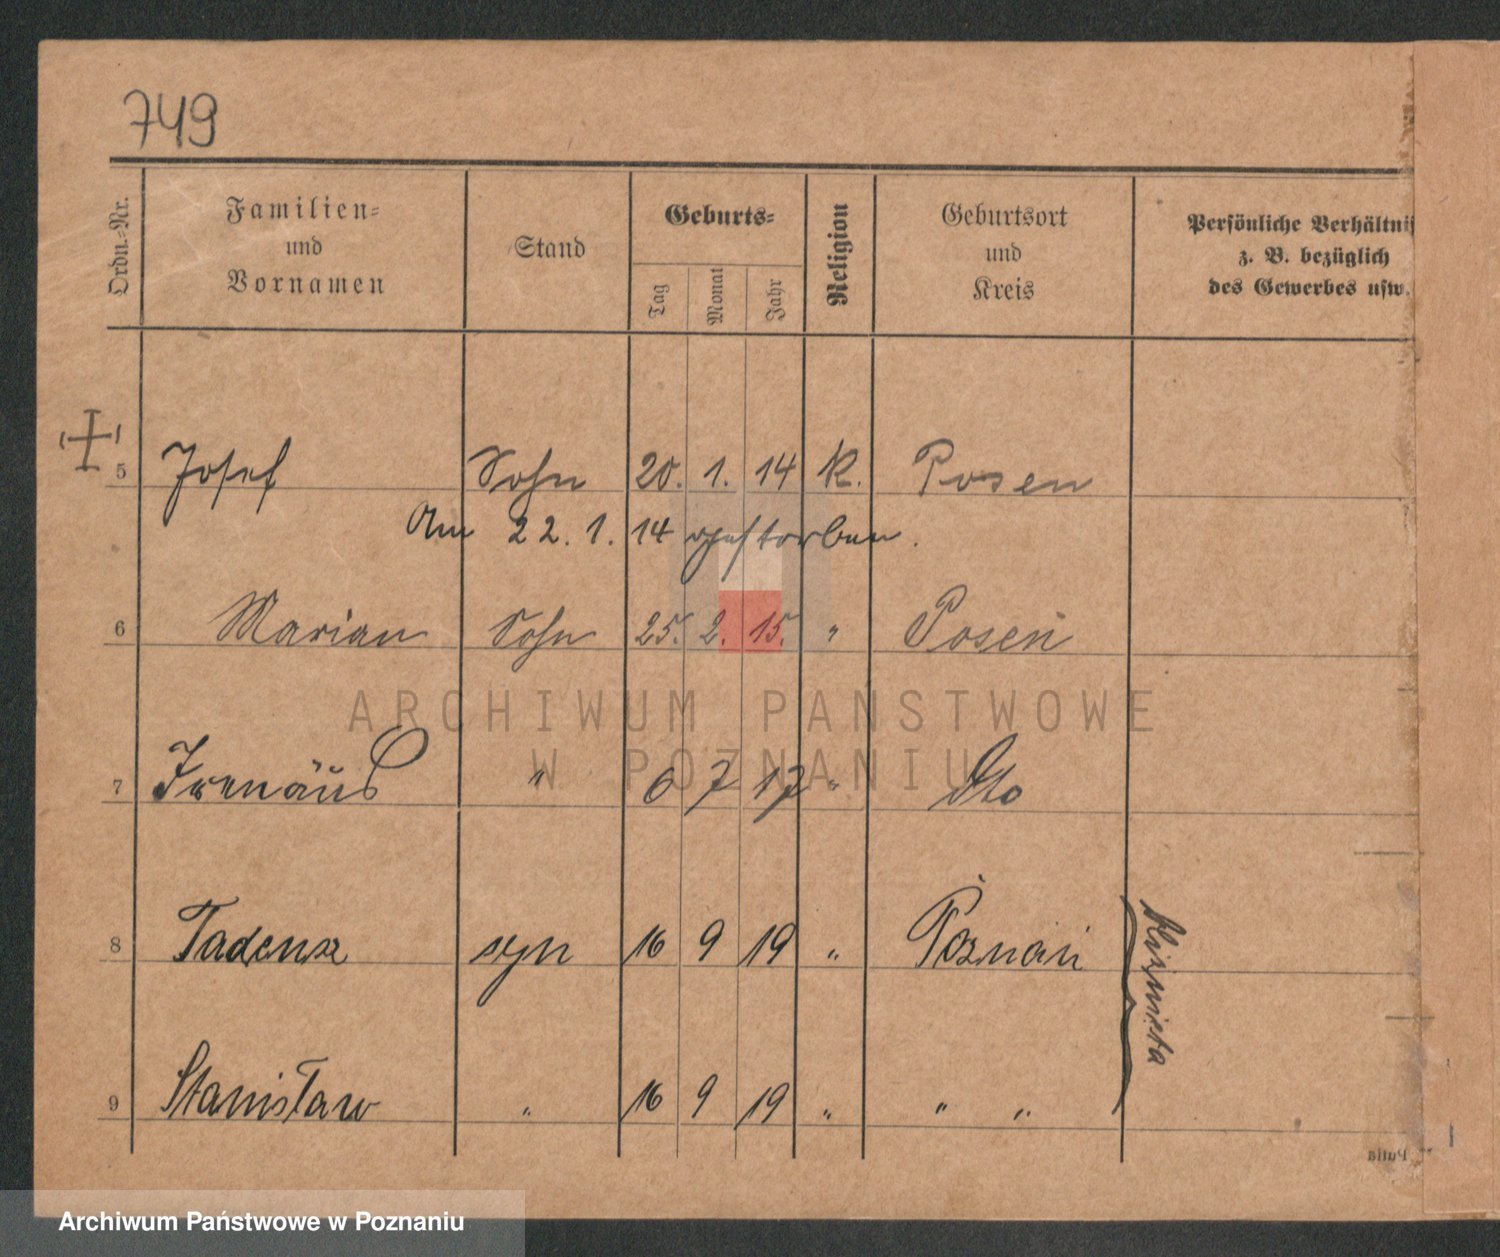 749
Ordn.-Nr.
Familien-
und
Vornamen
Stand
Geburts-
Tag Monat Jahr
Religion
Geburtsort
und
Kreis
Persönliche Verhältni
z. B. bezüglich
des Gewerbes usw.
5 Josef Sohn 20. 1. 14 K. Posen
Am 22. 1. 14 gestorben.
6 Marian Sohn 25. 2. 15. " Posen
7 Irenäus " 6 7 17 " dto
8 Tadeusz syn 16 9 19 " Poznań
Bliźnięta
9 Stanisław " 16 9 19 " " "
ARCHIWUM PAŃSTWOWE
W POZNANIU
Archiwum Państwowe w Poznaniu